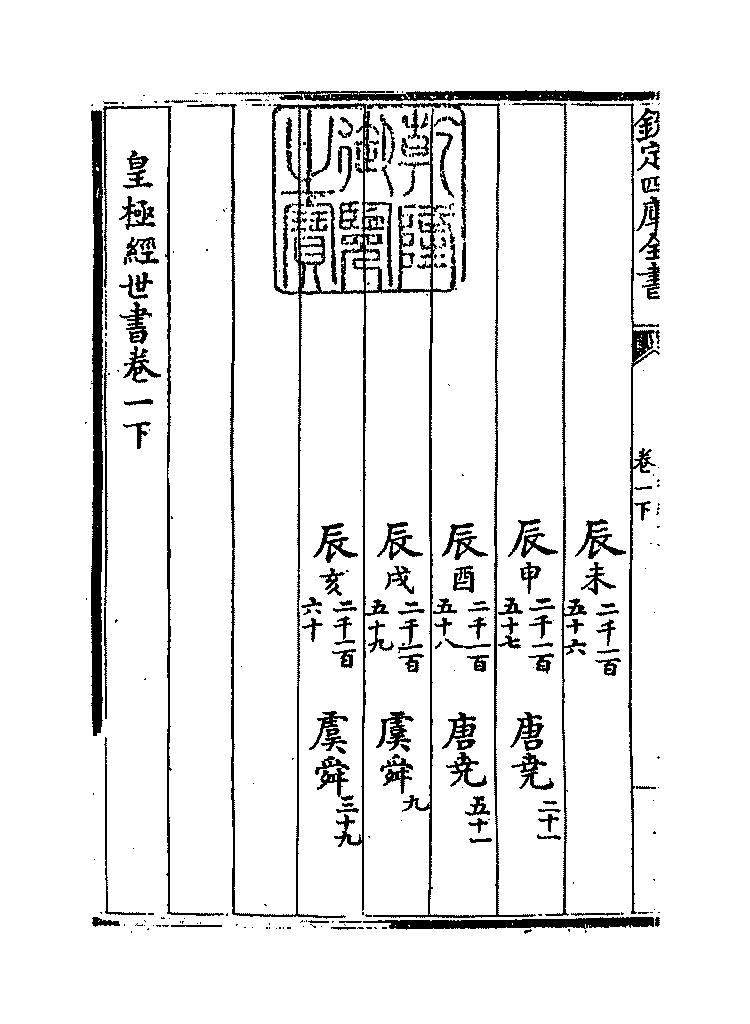 欽定四庫全書
卷一下
辰未二千一百五十六
辰申二千一百五十七 唐堯二十一
辰酉二千一百五十八 唐堯五十一
辰戌二千一百五十九 虞舜九
辰亥二千一百六十 虞舜三十九
乾隆御覽之寶
皇極經世書卷一下